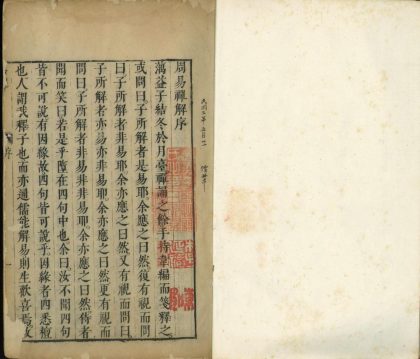 周易禪解序
蕅益子結冬於月臺禪誦之餘手持韋編而箋釋之
或問曰子所解者是易耶余應之曰然復有視而問
曰子所解者非易耶余亦應之曰然又有視而問曰
子所解者亦易亦非易耶余亦應之曰然更有視而
問曰子所解者非易非非易耶余亦應之曰然侍者
聞而笑曰若是乎墮在四句中也余曰汝不聞四句
皆不可說有因緣故四句皆可說乎因緣者四悉檀
也人謂我釋子也而亦通儒能解易則生歡喜焉故
序